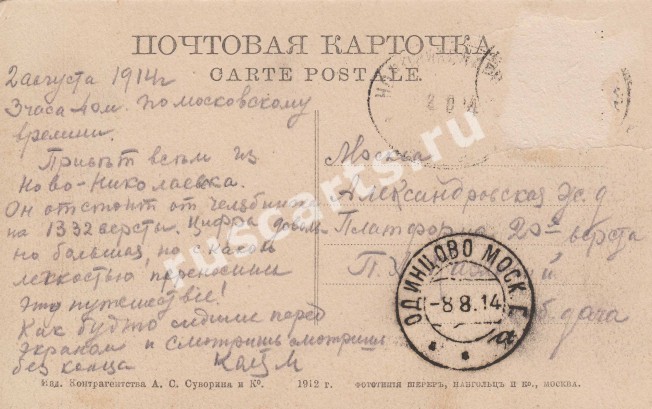 ПОЧТОВАЯ КАРТОЧКА
CARTE POSTALE.
2 августа 1914 г
3 часа дом. по московскому
времени.
Привѣт всѣм из
Ново-Николаевка.
Он отстоит от Челябинска
на 1332 версты. Цифра доволь
но большая, но с какой
легкостью переносиши
это путешествіе!
Как будто сидише перед
экраном и смотришь смотришь
без конца
Москва
Александровская ж. д
Платформа 20ая верста
П.
дача
ОДИНЦОВО МОСК. Г.
-8 8.14
Изд. Контрагентства А. С. Суворина и Ко. 1912 г. ФОТОТИПІЯ ШЕРЕРЪ, НАБГОЛЬЦЪ И Ко., МОСКВА.
ruscarts.ru